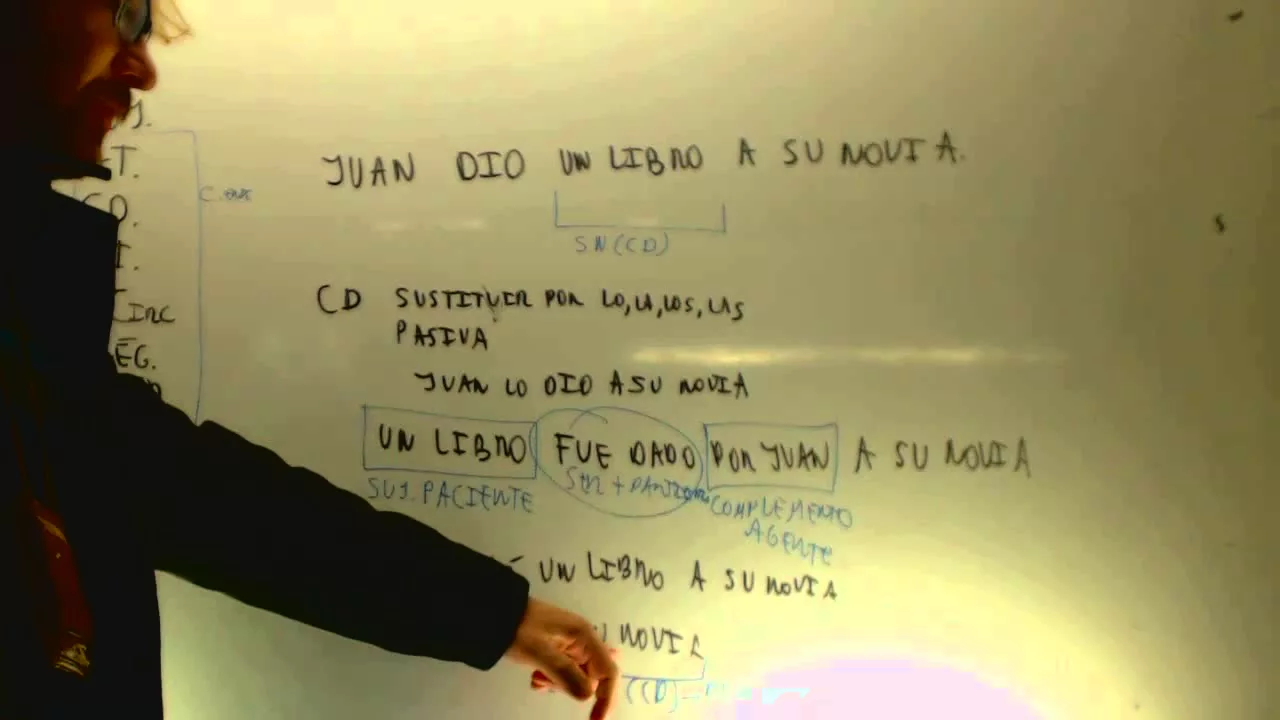 JUAN DIO UN LIBRO A SU NOVIA.
SN (CD)
CD SUSTITUIR POR LO, LA, LOS, LAS
PASIVA
JUAN LO DIO A SU NOVIA
UN LIBRO FUE DADO POR JUAN A SU NOVIA
SUJ. PACIENTE
SER +
COMPLEMENTO
AGENTE
UN LIBRO A SU NOVIA
NOVIA
(CD)
T.
I.
CIRC
EG.